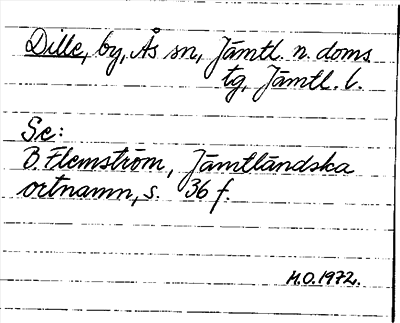 Dille, by, Ås sn, Jämtl. n. doms
tg, Jämtl. l.
Se:
B. Flemström, Jämtländska
ortnamn, s. 36 f.
M.O. 1972.